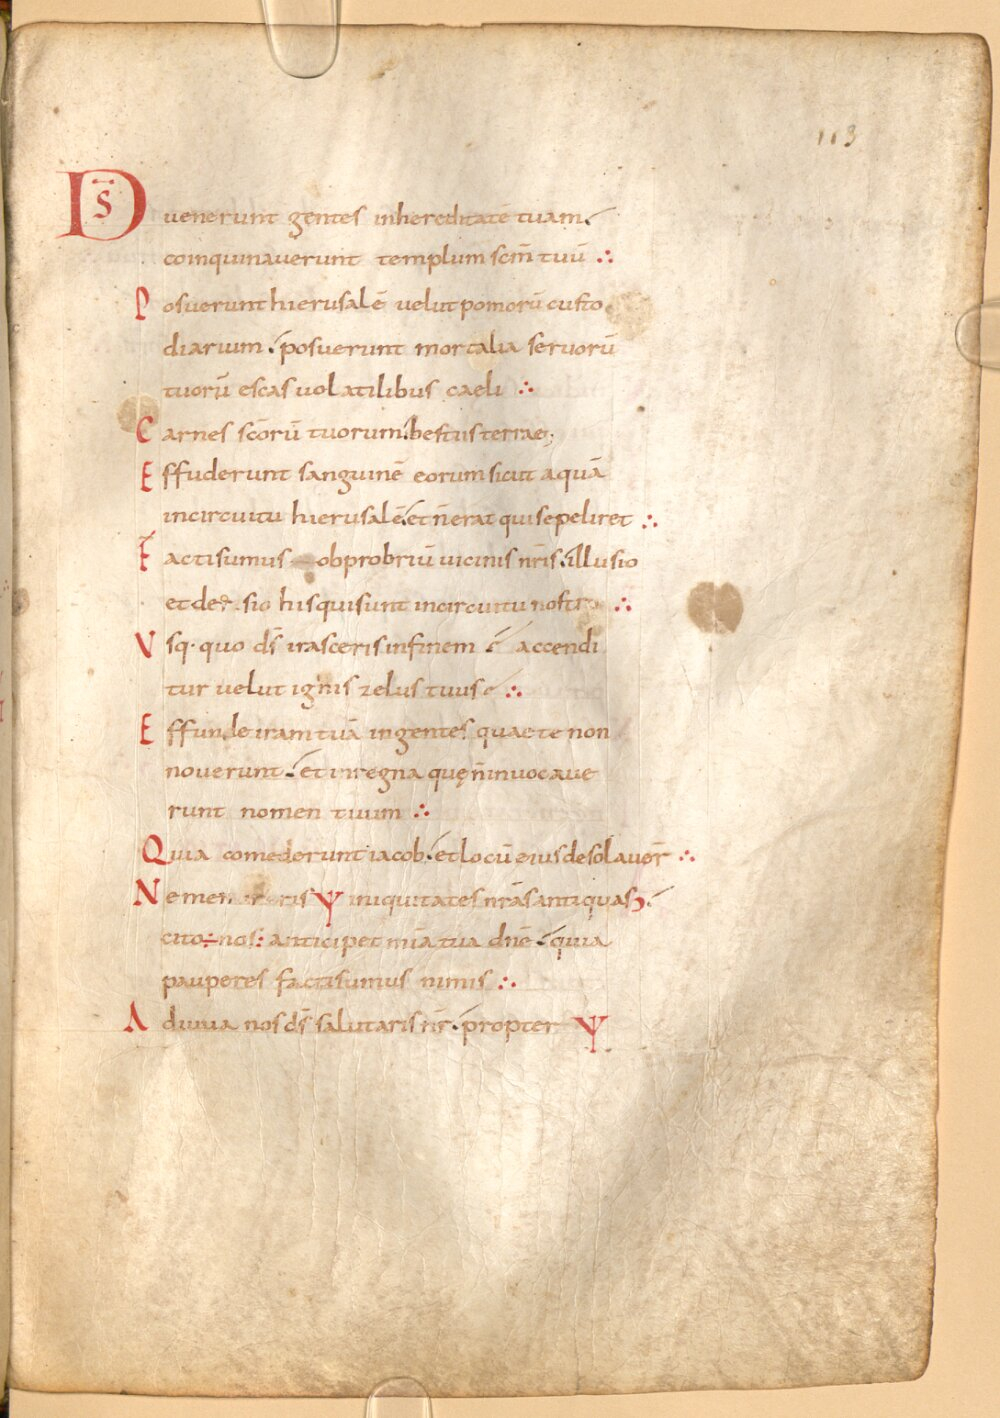 113
D̅S̅ uenerunt gentes inhereditatē tuam.
coinquinauerunt templum sc̅m tuū ∴
Posuerunt hierusalē velut pomorū custo
diarium. posuerunt mortalia seruorū
tuorū escas uolatilibus caeli ∴
Carnes sc̅orū tuorum. bestiis terrae;
Effuderunt sanguinē eorum sicut aquā
incircuitu hierusalē. et n̄ erat qui sepeliret ∴
Factisumus obprobriū uicinis nr̄is. illusio
et deri sio his qui sunt incircuitu nostro ∴
Vsq· quo ds̄ irasceris infinem accendi
tur velut ignis zelus tuus ∴
Effunde iram tuā ingentes quae te non
nouerunt. et inregna quę n̄ inuocaue
runt nomen tuum ∴
Quia comederunt iacob. et locū eius desolauer̄ ∴
Ne memineris Ψ iniquitates nr̄as antiquas
cito ÷ nos: anticipet mi̅a tua dn̄e. quia
pauperes factisumus nimis ∴
Adiuua nos ds̄ salutaris nr̄. propter Ψ